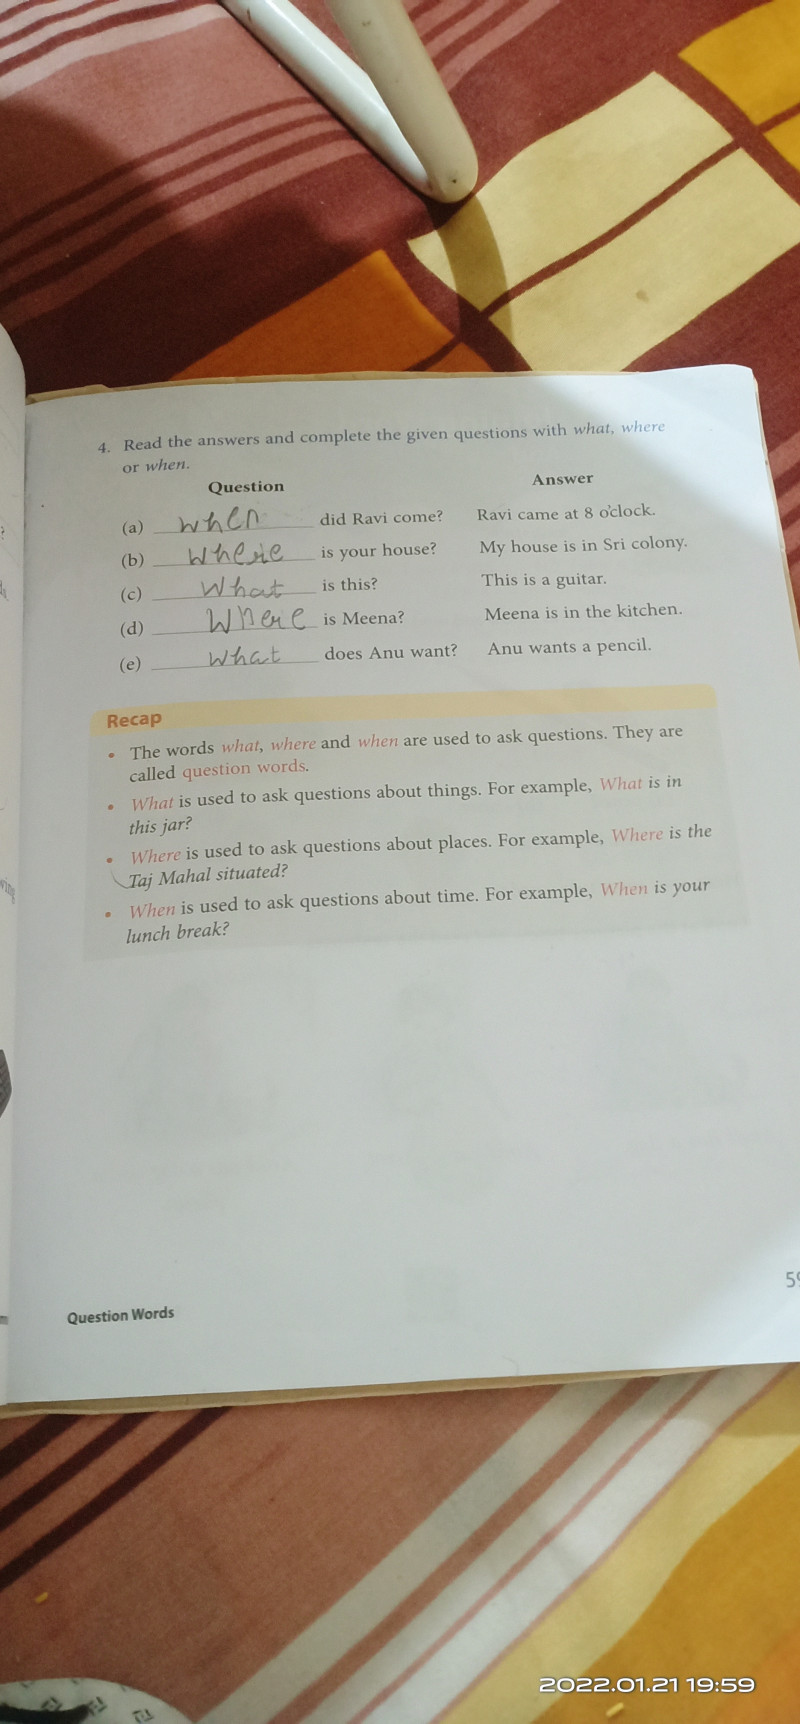 4. Read the answers and complete the given questions with what, where
or when.
Question Answer
(a) when did Ravi come? Ravi came at 8 o'clock.
(b) where is your house? My house is in Sri colony.
(c) What is this? This is a guitar.
(d) Where is Meena? Meena is in the kitchen.
(e) what does Anu want? Anu wants a pencil.
Recap
• The words what, where and when are used to ask questions. They are
called question words.
• What is used to ask questions about things. For example, What is in
this jar?
• Where is used to ask questions about places. For example, Where is the
Taj Mahal situated?
• When is used to ask questions about time. For example, When is your
lunch break?
Question Words
2022.01.21 19:59